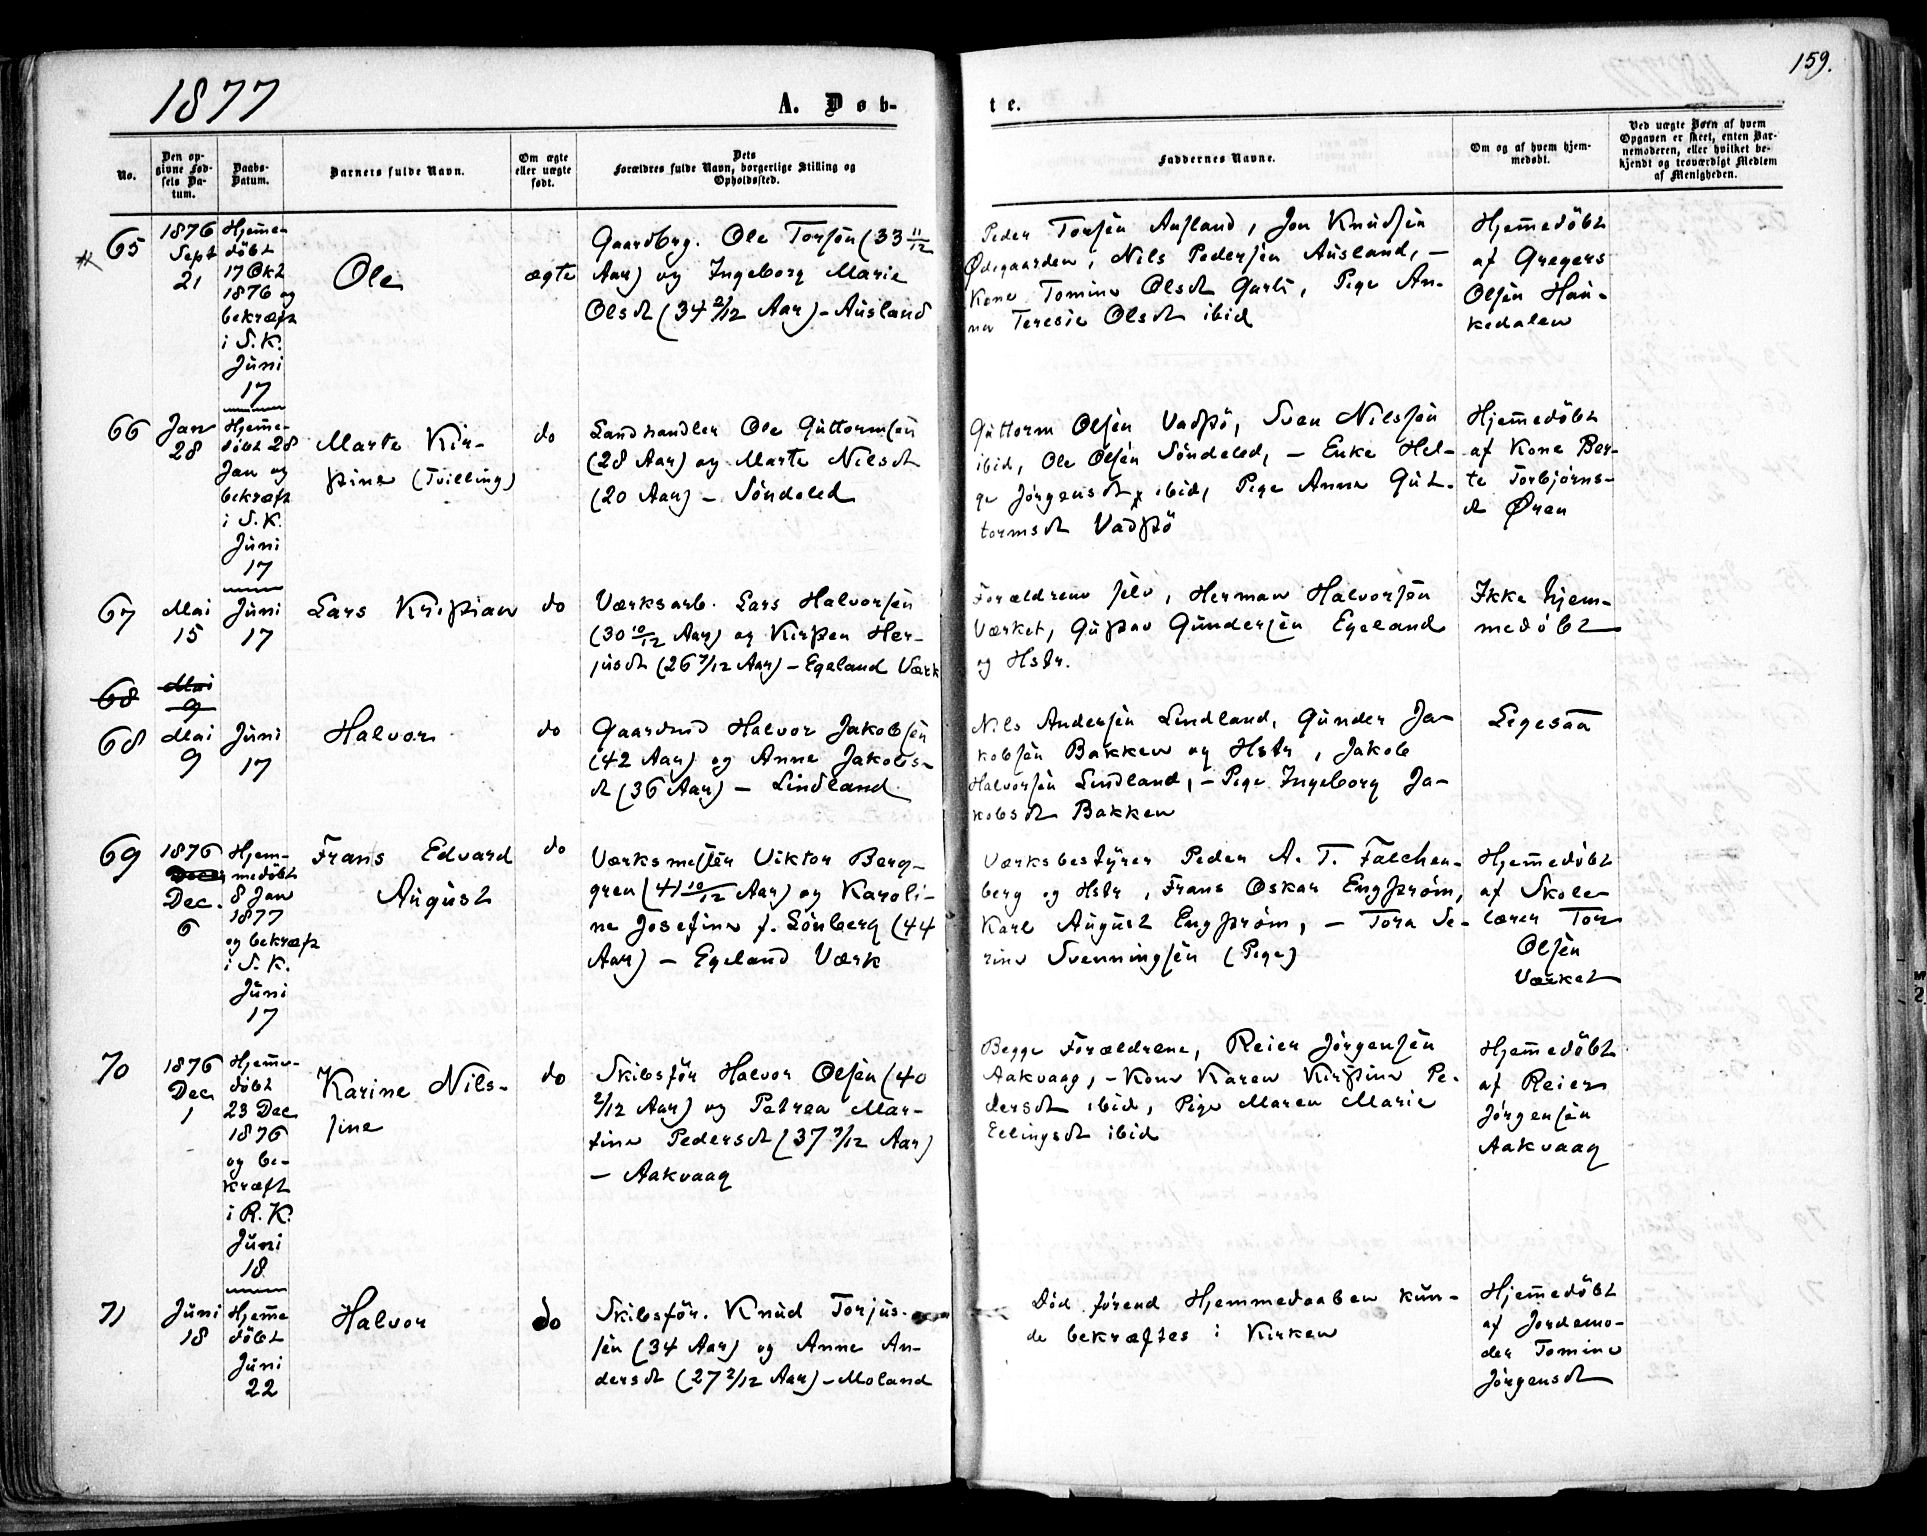 1877
A. Døb-
te.
159.
No.
Den op-
givne Fød-
sels Da-
tum.
Daabs-
Datum.
Barnets fulde Navn.
Om ægte
eller uægte
født.
Dets
Forældres fulde Navn, borgerlige Stilling og
Opholdssted.
Faddernes Navne.
Om og af hvem hjem-
medøbt.
Ved uægte Børn af hvem
Opgaven er skeet, enten Bar-
nemoderen, eller hvilket be-
kjendt og troværdigt Medlem
af Menigheden.
65
1876
Sept
21
Hjemme-
döbt
17 Okt
1876 og
bekræft
i S. K.
Juni
17
Ole
ægte
Gaardbrg. Ole Torsen (33 11/12
Aar) og Ingeborg Marie
Olsdt (34 2/12 Aar) – Ausland
Peder Torsen Ausland, Jon Knudsen
Ødegaarden, Nils Pedersen Ausland, –
Kone Tomine Olsdt Garti, Pige An-
na Teresie Olsdt ibid
Hjemmedöbt
af Gregers
Olsen Hau-
kedalen
66
Jan
28
Hjemme-
döbt 28
Jan og
bekræft
i S. K.
Juni
17
Marte Kir-
stine (Tvilling)
do
Landhandler Ole Guttormsen
(28 Aar) og Marte Nilsdt
(20 Aar) – Söndeled
Guttorm Olsen Vadstö, Sven Nilssen
ibid, Ole Olsen Söndeled, – Enke Hel-
ge Jörgensdt ibid, Pige Anna Gut-
tormsdt Vadstö
Hjemmedöbt
af Kone Ber-
te Torbjörns-
dt Øren
67
Mai
15
Juni
17
Lars Kristian
do
Værksarb. Lars Halvorsen
(30 10/12 Aar) og Kirsten Her-
jusdt (26 7/12 Aar) – Egeland Værk
Forældrene selv, Herman Halvorsen
Værket, Gustav Gundersen Egeland
og Hstr.
Ikke hjem-
medöbt
68
Mai
9
68
Mai
9
Juni
17
Halvor
do
Gaardmd Halvor Jakobsen
(42 Aar) og Anne Jakobs-
dt (36 Aar) – Lindland
Nils Andersen Lindland, Gunder Ja-
kobsen Bakken og Hstr, Jakob
Halvorsen Lindland, – Pige Ingeborg Ja-
kobsdt Bakken
Ligesaa
69
1876
Dec.
6
Hjem-
medöbt
8 Jan
1877
og bekræft
i S. K.
Juni
17
Frans Edvard
August
do
Værksmester Viktor Berg-
gren (41 10/12 Aar) og Karoli-
ne Josefine f. Lönberg (44
Aar) – Egeland Værk
Værksbestyrer Peder A. T. Falchen-
berg og Hstr, Frans Oskar Engström,
Karl August Engström, – Tora Se-
rine Svenningsen (Pige)
Hjemmedöbt
af Skole
lærer Tor
Olsen
Værket
70
1876
Dec
1
Hjemme-
döbt
23 Dec
1876
og be-
kræft
i R. K.
Juni
18
Karine Nils-
sine
do
Skibsför Halvor Olsen (40
2/12 Aar) og Petrea Mar-
tine Pedersdt (37 7/12 Aar)
– Aakvaag
Begge Forældrene, Reier Jörgensen
Aakvaag, – Kone Karen Kirstine Pe-
dersdt ibid, Pige Maren Marie
Ellingsdt ibid
Hjemmedöbt
af Reier
Jörgensen
Aakvaag
71
Juni
18
Hjemme
döbt
Juni
22
Halvor
do
Skibsför. Knud Torjus-
sen (34 Aar) og Anne An-
dersdt (27 2/12 Aar) – Moland
Död förend Hjemmedaaben kun-
de bekræftes i Kirken
Hjemmedöbt
af Jordemo-
der Tomine
Jörgensdt